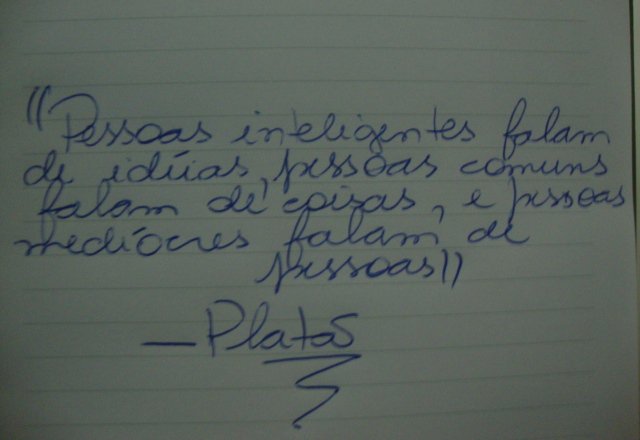 "Pessoas inteligentes falam
de idéias, pessoas comuns
falam de coisas, e pessoas
medíocres falam de
pessoas"
— Platão